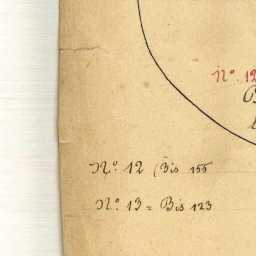 Nº. 12
B
Nº. 12 (Bis 155
Nº. 13 = Bis 123